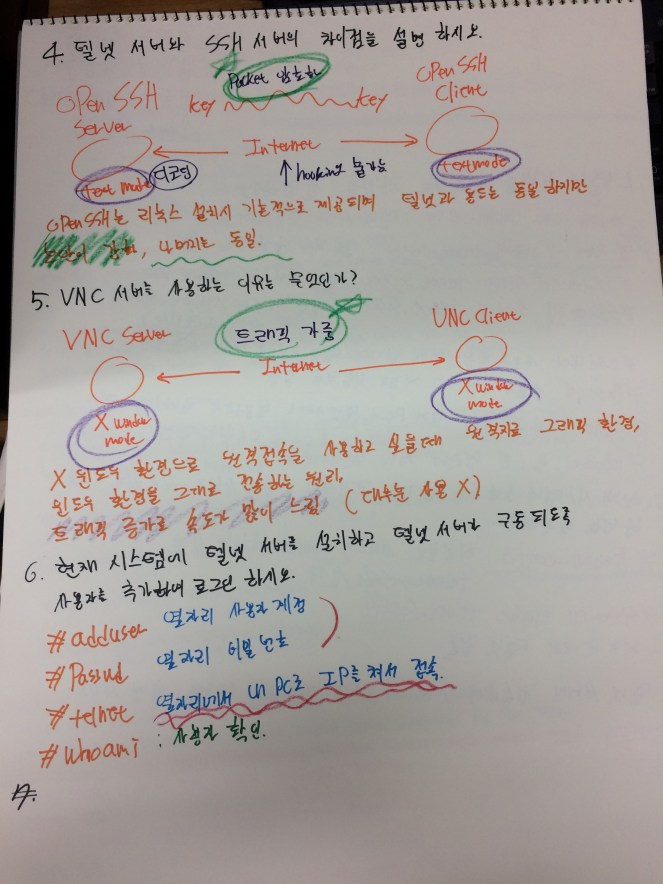 4. 텔넷 서버와 SSH 서버의 차이점을 설명 하시오.
Packet 암호화
OPen SSH Server
key key
OPen SSH Client
Internet
text mode
디코딩
↑ hooking 불가능
text mode
OPen SSH는 리눅스 설치시 기본적으로 제공되며 텔넷과 용도는 동일 하지만
보안이 강화, 나머지는 동일.
5. VNC 서버를 사용하는 이유는 무엇인가?
VNC Server
트래픽 가중
VNC Client
Internet
X window mode
X window mode
X 윈도우 환경으로 원격접속을 사용하고 싶을때 원격지로 그래픽 환경,
윈도우 환경을 그대로 전송하는 원리,
트래픽 증가로 속도가 많이 느림 (대부분 사용 X)
6. 현재 시스템에 텔넷 서버를 설치하고 텔넷 서버가 구동 되도록
사용자를 추가하여 로그인 하시오.
#adduser 옆자리 사용자 계정
#Passwd 옆자리 비밀 번호
#telnet 옆자리에서 내 PC로 IP를 쳐서 접속.
#whoami : 사용자 확인.
7.